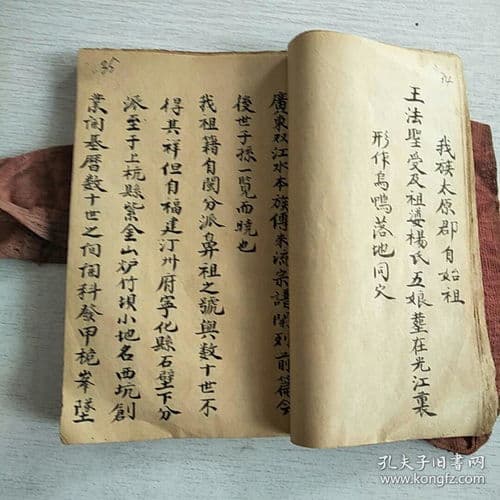 我族太原郡自始祖
王法聖受及祖婆楊氏五娘墓在光江裏
形作烏鴨落地同穴
廣東双江水本族傳來流宗譜開列前篇令
後世子孫一覽而曉也
我祖籍自閩分派鼻祖之號與数十世不
得其祥但自福建汀州府寧化縣石壁下分
派至于上杭縣紫金山炉付垻小地名西坑創
業開基曆数十世之间開科發甲桅峯墜
35
孔夫子旧书网
www.kongfz.com